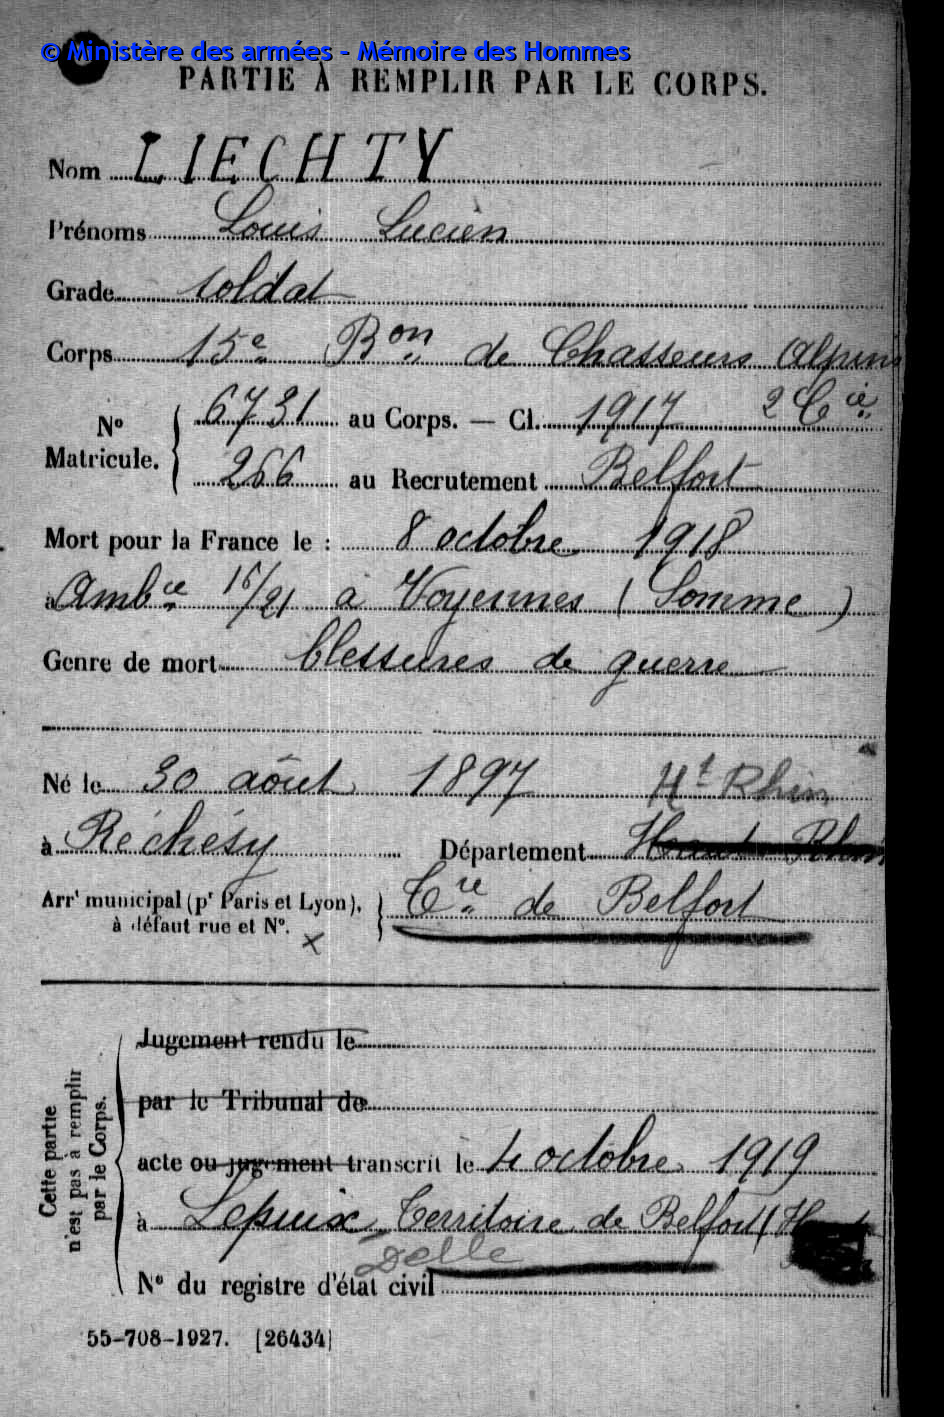 © Ministère des armées - Mémoire des Hommes
PARTIE À REMPLIR PAR LE CORPS.
Nom LIECHTY
Prénoms Louis Lucien
Grade soldat
Corps 15e Bon de Chasseurs Alpins
No Matricule. { 6731 au Corps. — Cl. 1917 2 Cie
266 au Recrutement Belfort
Mort pour la France le : 8 octobre 1918
à Ambce 16/21 à Voyennes (Somme)
Genre de mort blessures de guerre
Né le 30 août 1897 Ht Rhin
à Réchésy Département Haut Rhin
Arrt municipal (pr Paris et Lyon), à défaut rue et No. } Tre de Belfort
x
Cette partie n'est pas à remplir par le Corps.
Jugement rendu le
par le Tribunal de
acte ou jugement transcrit le 4 octobre 1919
à Lepuix, Territoire de Belfort (Haut
Delle
No du registre d'état civil
55-708-1927. [26434]